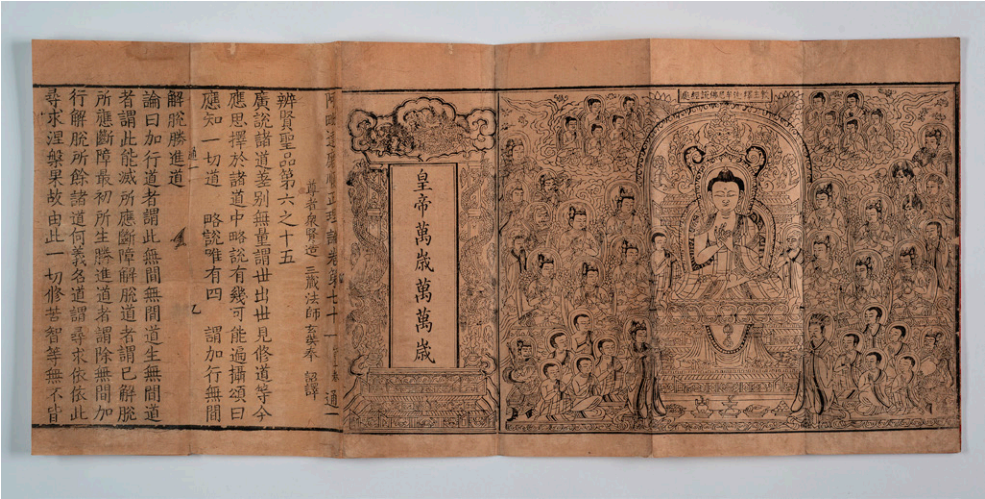 皇帝萬歲萬萬歲
阿毗達磨順正理論卷第七十一 通一
尊者衆賢造 三藏法師玄奘奉 詔譯
辨賢聖品第六之十五
廣說諸道差別無量謂世出世見修道等今
應思擇於諸道中略說有幾可能遍攝頌曰
應知一切道 略說唯有四 謂加行無間
通一
解脫勝進道
論曰加行道者謂此無間無間道生無間道
者謂此能滅所應斷障解脫道者謂已解脫
所應斷障最初所生勝進道者謂除無間加
行解脫所餘諸道何義名道謂尋求依依此
尋求涅槃果故由此一切修苦智等無不皆